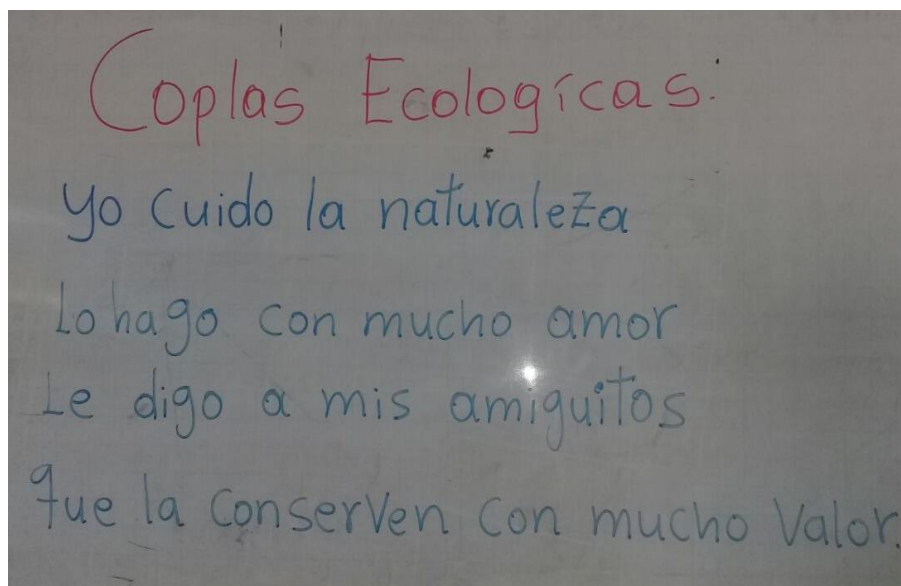 Coplas Ecologícas:
yo cuido la naturaleza
Lo hago con mucho amor
Le digo a mis amiguitos
que la conserven con mucho valor.